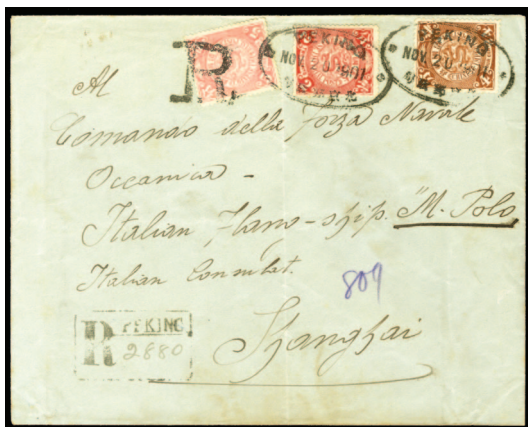 R
PEKING
NOV 20 1901
PEKING
NOV. 20
Al
Comando della forza Navale
Oceanica -
Italian flang-ship. "M. Polo
Italian Consulat.
809
Shanghai
R PEKING
2880